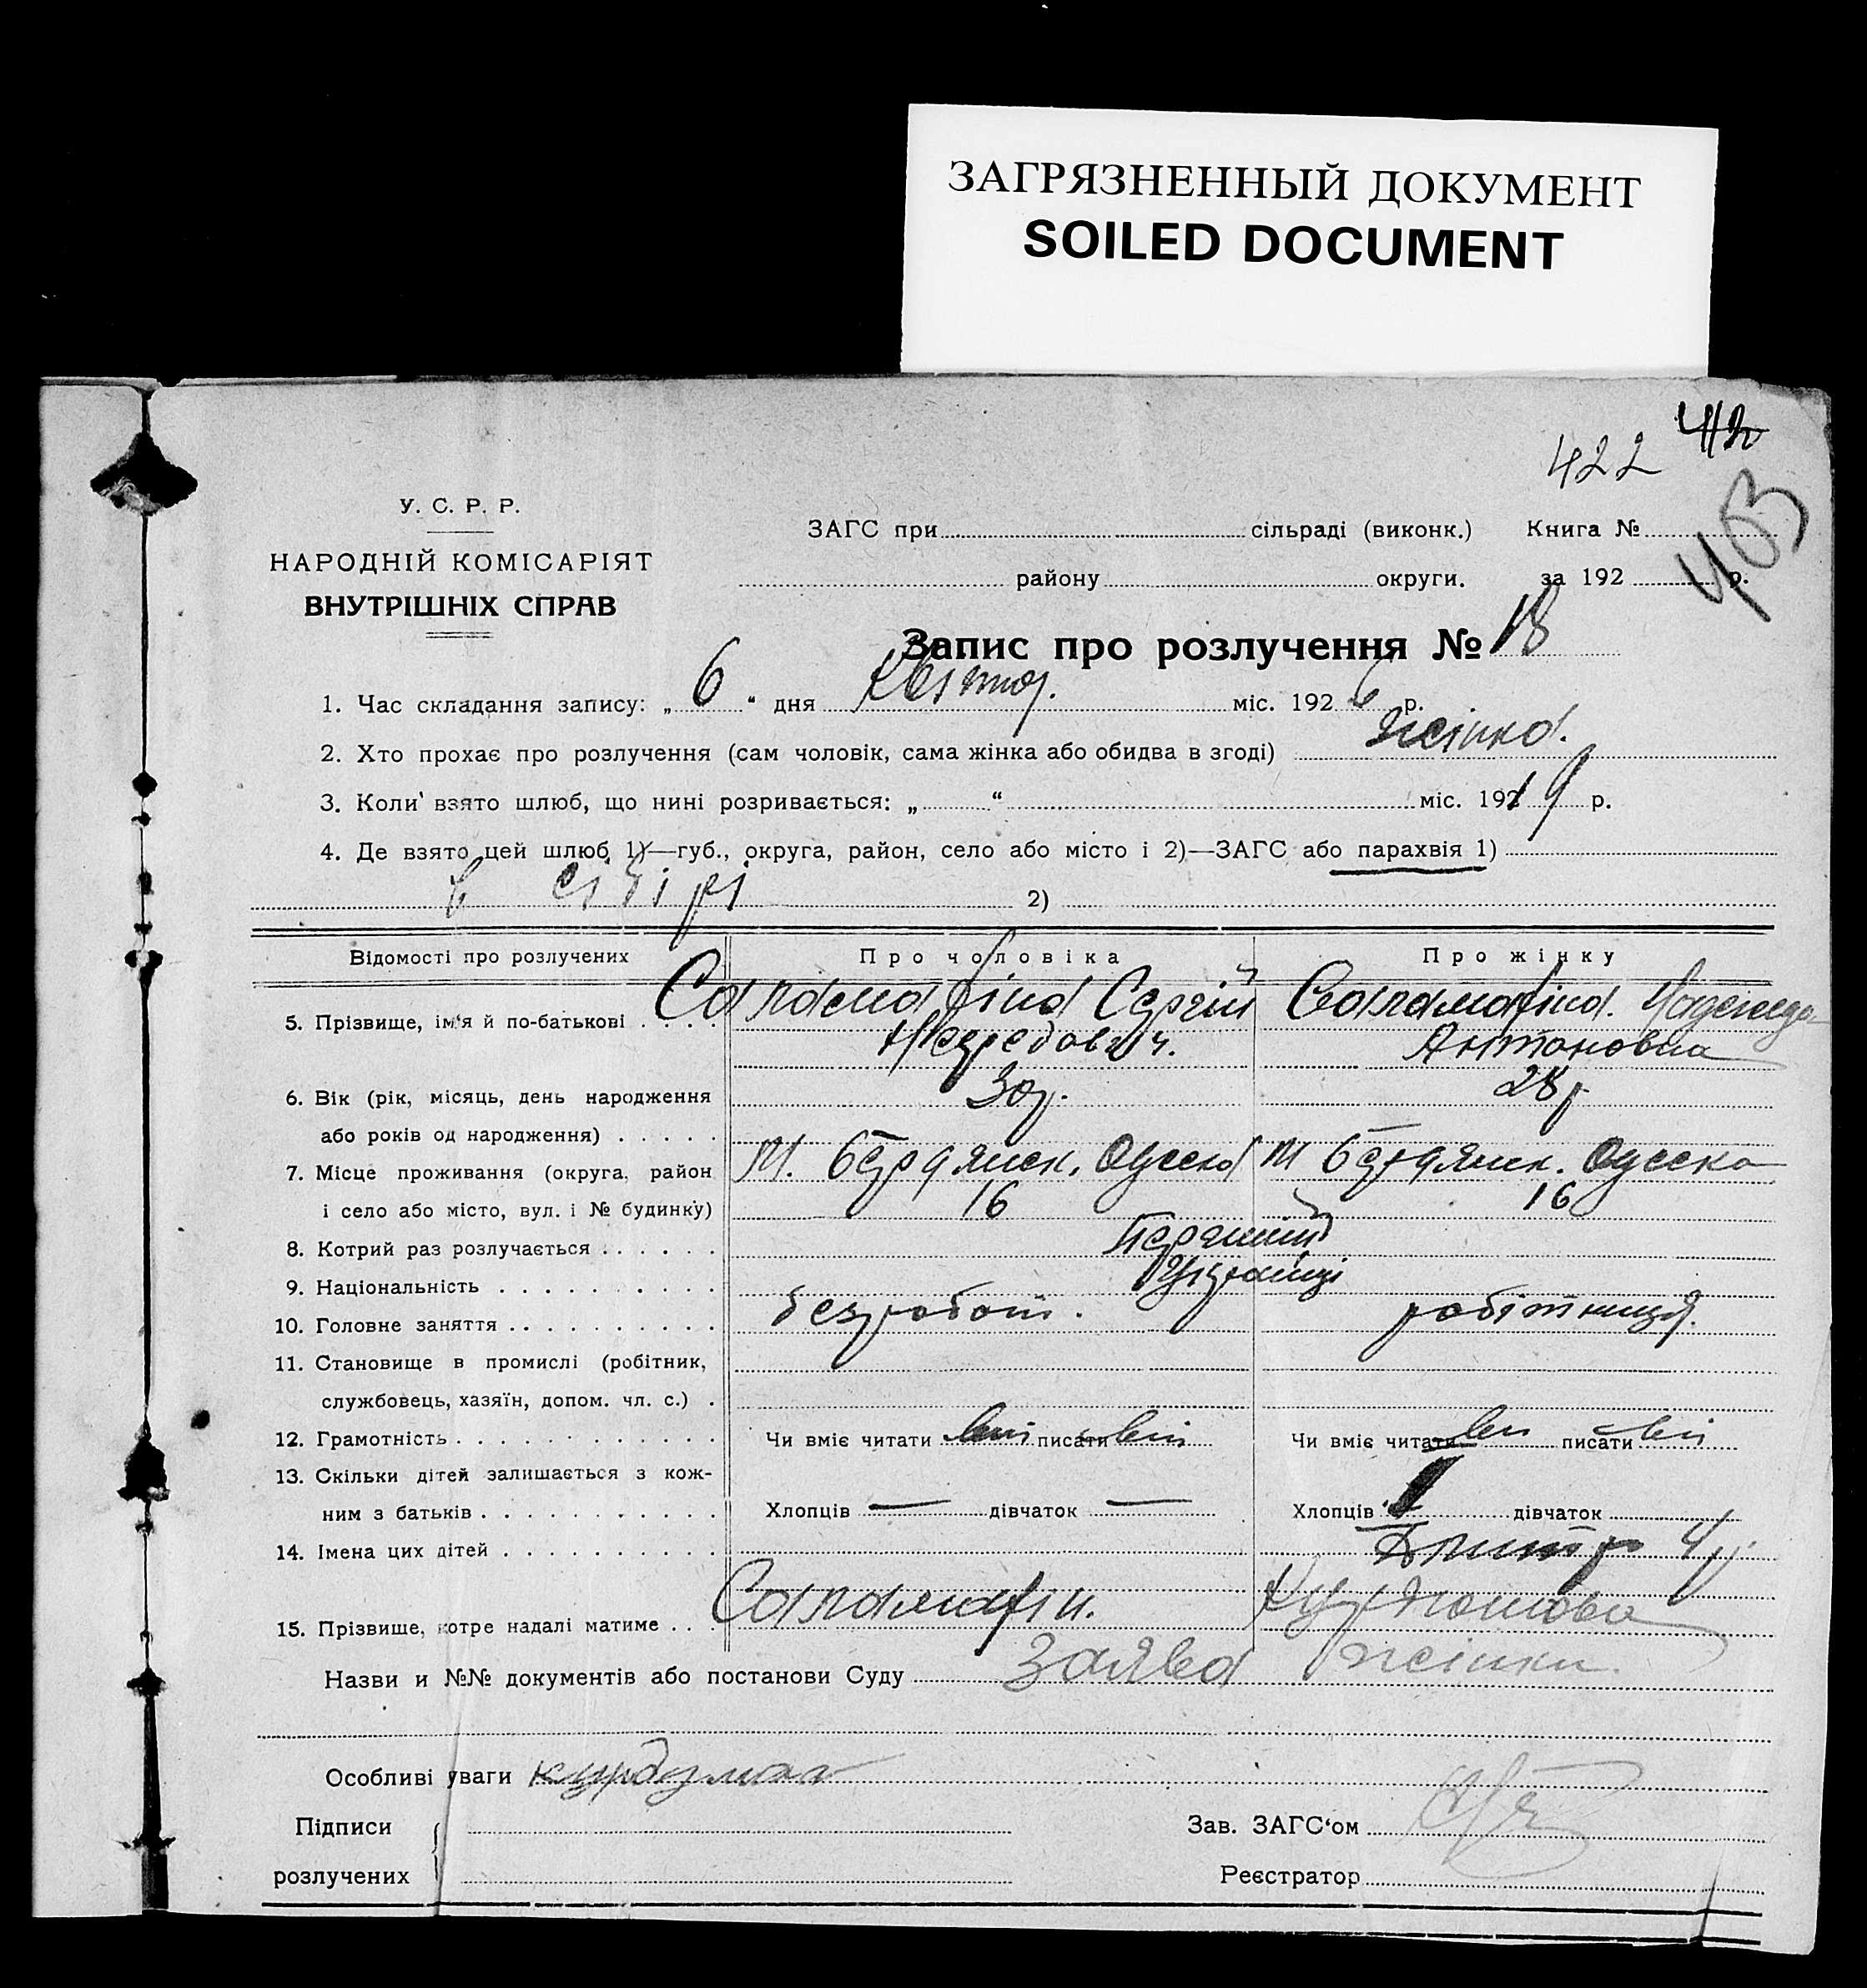 ЗАГРЯЗНЕННЫЙ ДОКУМЕНТ
SOILED DOCUMENT
422 412
403
У. С. Р. Р.
НАРОДНІЙ КОМІСАРІЯТ
ВНУТРІШНІХ СПРАВ
ЗАГС при сільраді (виконк.) Книга №
району округи. за 192 р.
Запис про розлучення № 18
1. Час складання запису: „ 6 “ дня Квітня. міс. 192 6 р.
2. Хто прохає про розлучення (сам чоловік, сама жінка або обидва в згоді) жінка.
3. Коли взято шлюб, що нині розривається: „ “ міс. 1919 р.
4. Де взято цей шлюб 1)—губ., округа, район, село або місто і 2)—ЗАГС або парахвія 1)
в сібірі 2)
Відомості про розлучених Про чоловіка Про жінку
5. Прізвище, ім'я й по-батькові Сергій Надежда
Антоновна
6. Вік (рік, місяць, день народження 30р. 28р.
або років од народження)
7. Місце проживання (округа, район М. Бердянск. Одеска М Бердянск. Одеска
і село або місто, вул. і № будинку) 16 16
8. Котрий раз розлучається Перший
9. Національність Українці
10. Головне заняття безробот. робітниця.
11. Становище в промислі (робітник,
службовець, хазяїн, допом. чл. с.)
12. Грамотність Чи вміє читати вміє писати вміє Чи вміє читати вміє писати вміє
13. Скільки дітей залишається з кож-
ним з батьків Хлопців — дівчаток — Хлопців 1 дівчаток
14. Імена цих дітей Дмитро 4р.
15. Прізвище, котре надалі матиме
Назви и №№ документів або постанови Суду Заява жінки.
Особливі уваги
Підписи
розлучених
Зав. ЗАГС'ом
Реєстратор